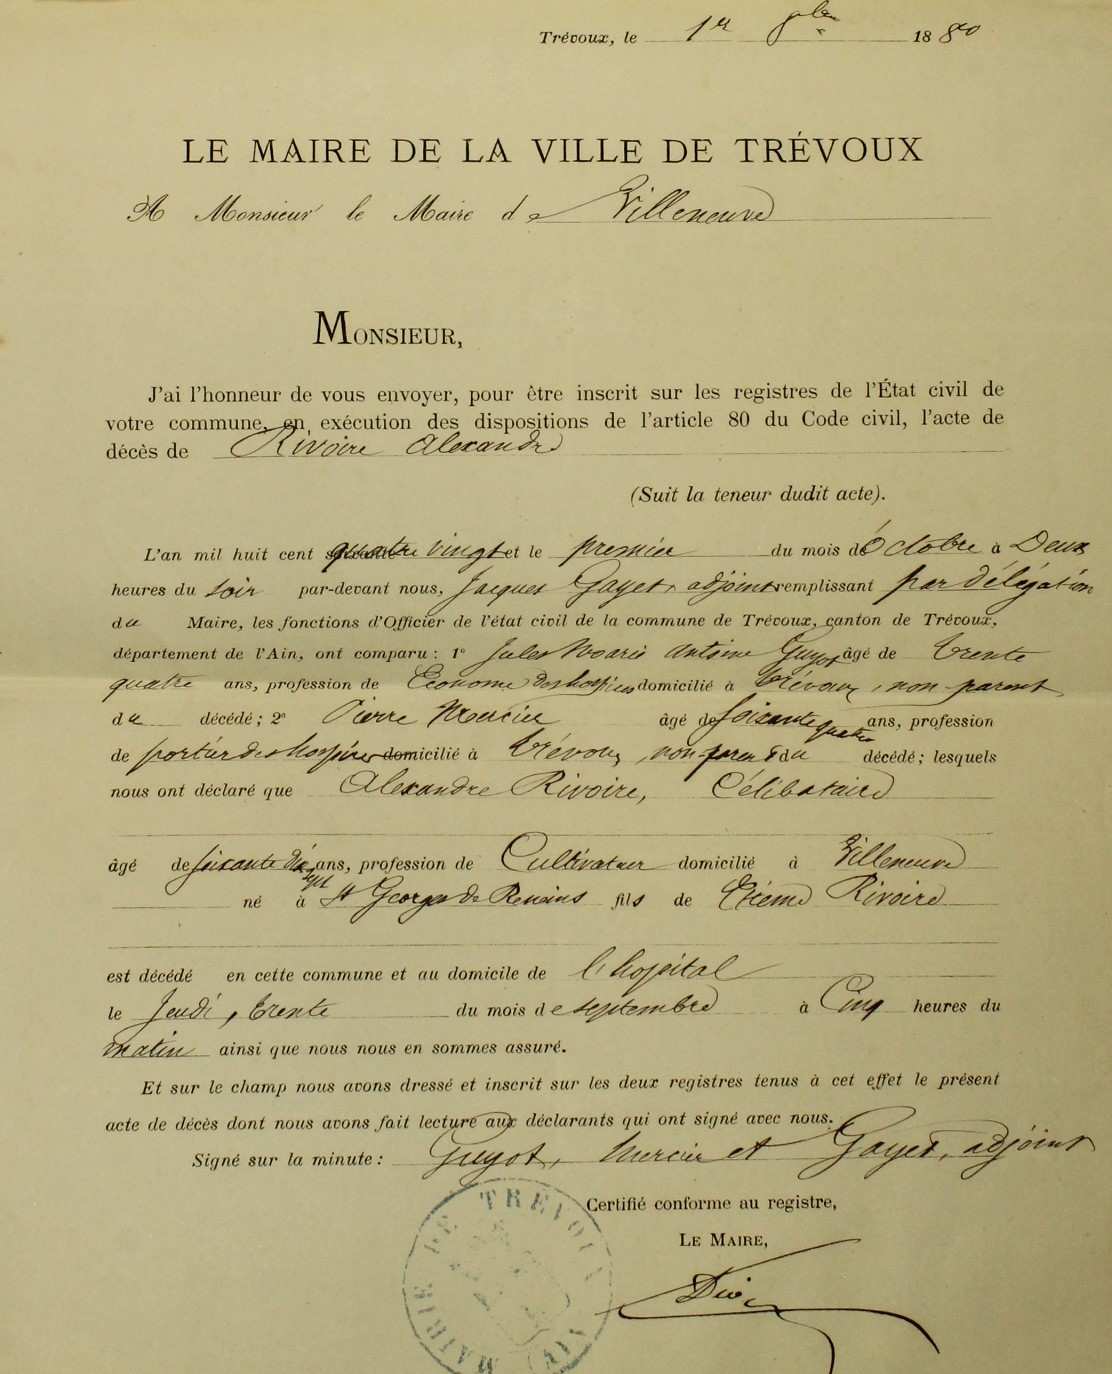 Trévoux, le 1er 8bre 1880
LE MAIRE DE LA VILLE DE TRÉVOUX
A Monsieur le Maire de Villeneuve
MONSIEUR,
J'ai l'honneur de vous envoyer, pour être inscrit sur les registres de l'État civil de
votre commune, en exécution des dispositions de l'article 80 du Code civil, l'acte de
décès de Rivoire Alexandre
(Suit la teneur dudit acte).
L'an mil huit cent quatre vingt et le premier du mois d'Octobre à Deux
heures du soir par-devant nous, Jacques Gayet, adjoint remplissant par délégation
du Maire, les fonctions d'Officier de l'état civil de la commune de Trévoux, canton de Trévoux,
département de l'Ain, ont comparu : 1° Jules Marie Antoine Guyot âgé de trente
quatre ans, profession de Econome des hospices domicilié à Trévoux, non parent
du décédé ; 2° Pierre Mercier âgé de soixante quatre ans, profession
de portier des hospices domicilié à Trévoux, non parent du décédé ; lesquels
nous ont déclaré que Alexandre Rivoire, Célibataire
âgé de soixante dix sept ans, profession de Cultivateur domicilié à Villeneuve
né à St Georges de Reneins fils de Etienne Rivoire
est décédé en cette commune et au domicile de l'hopital
le Jeudi, trente du mois de septembre à Cinq heures du
matin ainsi que nous nous en sommes assuré.
Et sur le champ nous avons dressé et inscrit sur les deux registres tenus à cet effet le présent
acte de décès dont nous avons fait lecture aux déclarants qui ont signé avec nous.
Signé sur la minute : Guyot, Mercier et Gayet, adjoint
Certifié conforme au registre,
LE MAIRE,
MAIRIE DE TRÉVOUX (AIN)